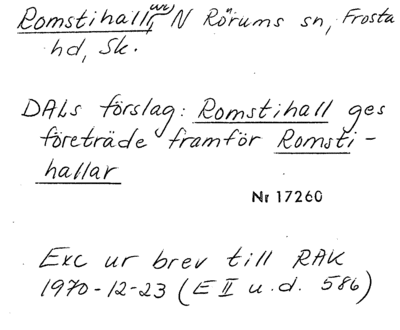 Romstihall, N Rörums sn, Frosta
hd, Sk.
DALs förslag: Romstihall ges
företräde framför Romsti-
hallar
Nr 17260
Exc ur brev till RAK
1970-12-23 (E II u.d. 586)